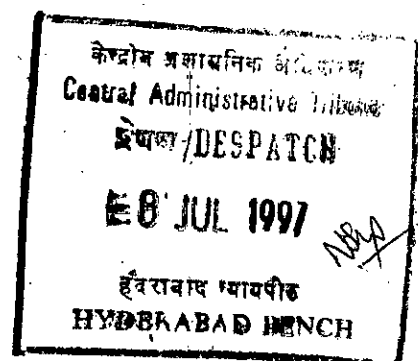 केन्द्रीय प्रशासनिक अधिकरण
Central Administrative Tribunal
प्रेषण/DESPATCH
8 JUL 1997
हैदराबाद न्यायपीठ
HYDERABAD BENCH